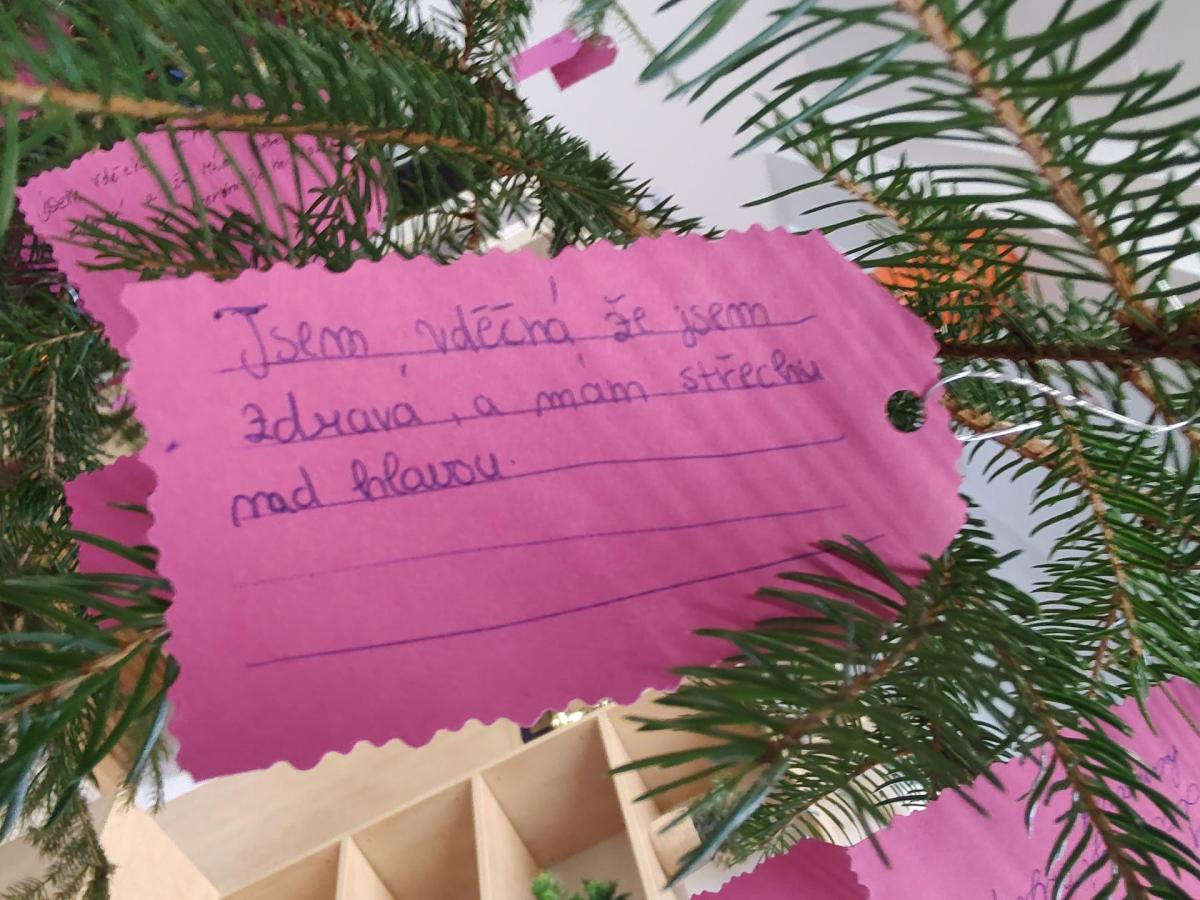 Jsem vděčná že jsem
zdravá, a mám střechu
nad hlavou.
jsem vděčná